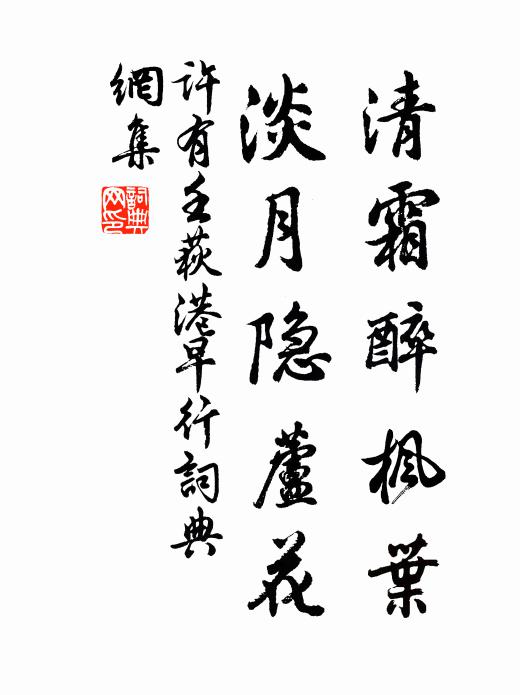 清霜醉楓葉
淡月隐蘆花
許有壬荻港早行詞典
網集
詞典网印